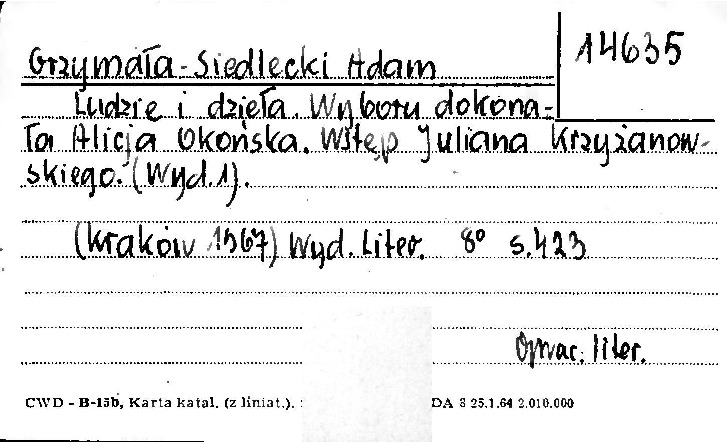 14635
Grzymała-Siedlecki Adam
Ludzie i dzieła. Wyboru dokona-
ła Alicja Okońska. Wstęp Juliana Krzyżanow-
skiego. (Wyd.1).
(Kraków 1967) Wyd. Liter. 8° s.423
Oprac. liter.
CWD - B-15b, Karta katal. (z liniat.). DA 8 25.1.64 2.010.000